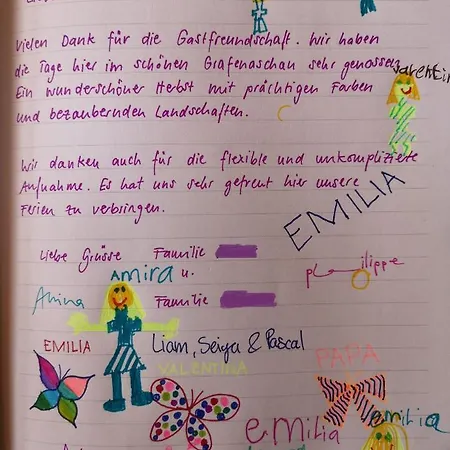 Vielen Dank für die Gastfreundschaft. Wir haben
die Tage hier im schönen Grafenaschau sehr genossen.
Ein wunderschöner Herbst mit prächtigen Farben
und bezaubernden Landschaften.
Valentin
Wir danken auch für die flexible und unkomplizierte
Aufnahme. Es hat uns sehr gefreut hier unsere
Ferien zu verbringen.
EMILIA
Liebe Grüsse Familie
Amira u.
Familie
EMILIA
Liam, Seiya & Pascal
VALENTINA
PAPA
emilia
emilia